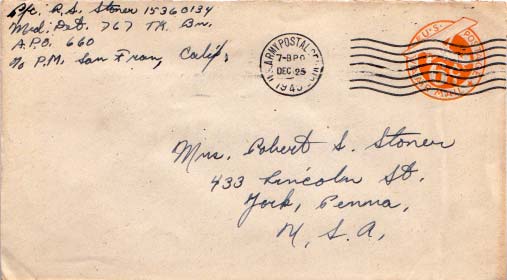 Pfc. R.S. Stoner 15360134
Med. Det. 767 TK. Bn.
A.P.O. 660
c/o P.M. San Fran, Calif,
U.S. ARMY POSTAL SERVICE
7-B P.O.
DEC 25
194
U.S. POSTAGE
6¢
Mrs. Robert S. Stoner
433 Lincoln St.
York, Penna,
U, S, A,